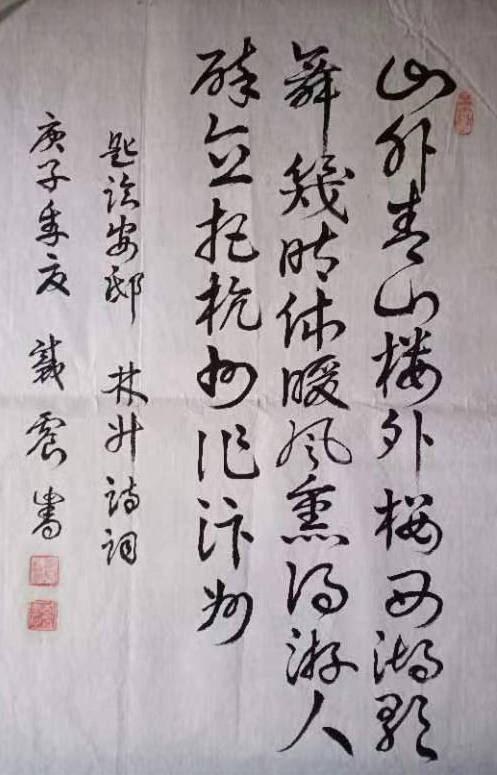 山外青山楼外楼西湖歌
舞幾时休暖风熏得游人
醉直把杭州作汴州
题临安邸 林升诗词
庚子季夏 戴震書